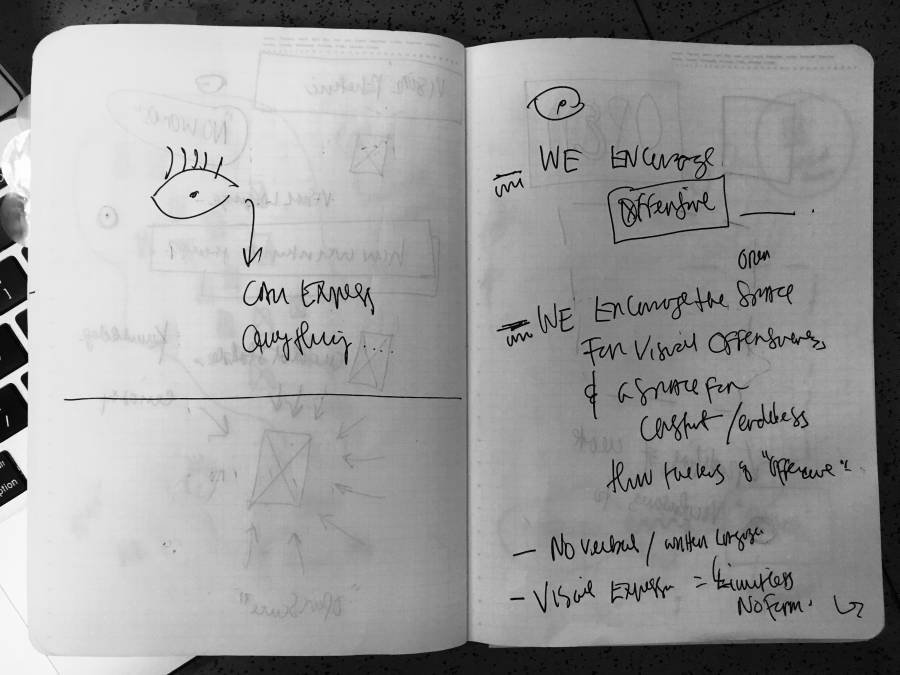 Can Express
anything ...
P
WE Encourage
Offensive ______ .
open
WE Encourage the Space
For Visual Offensiveness
& a space for
constant / endless
of "offensive".
- No verbal / written language
- Visual Expression = Limitless
No Form.
option